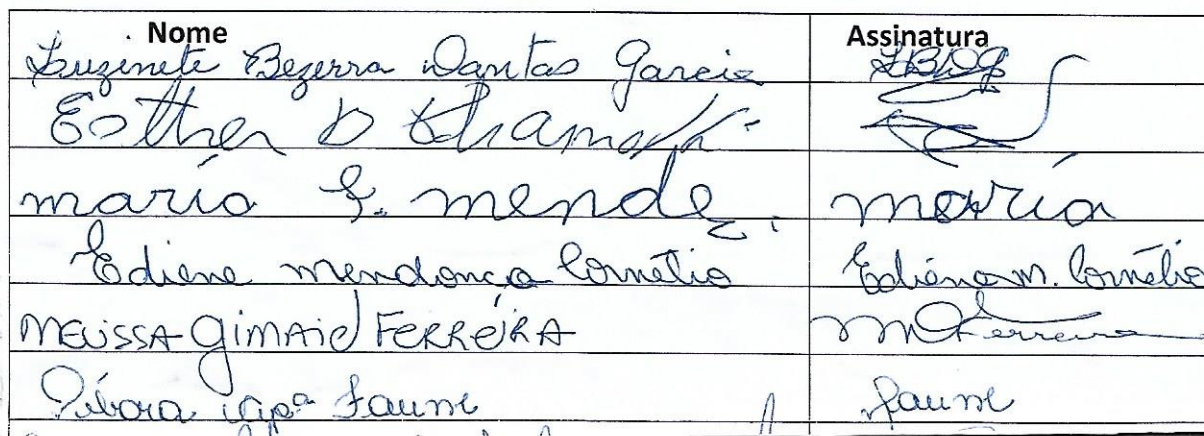 Nome Assinatura
Luzinete Bezerra Dantas Garcia LBDG
Esther D
maria F. mende
Ediene mendonça Cornélio Ediene M. Cornélio
MELISSA GIMAIEL FERREIRA M Ferreira
Débora Laune Laune